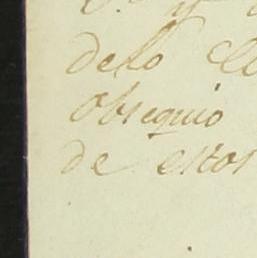 y
delo
obsequio
de estos